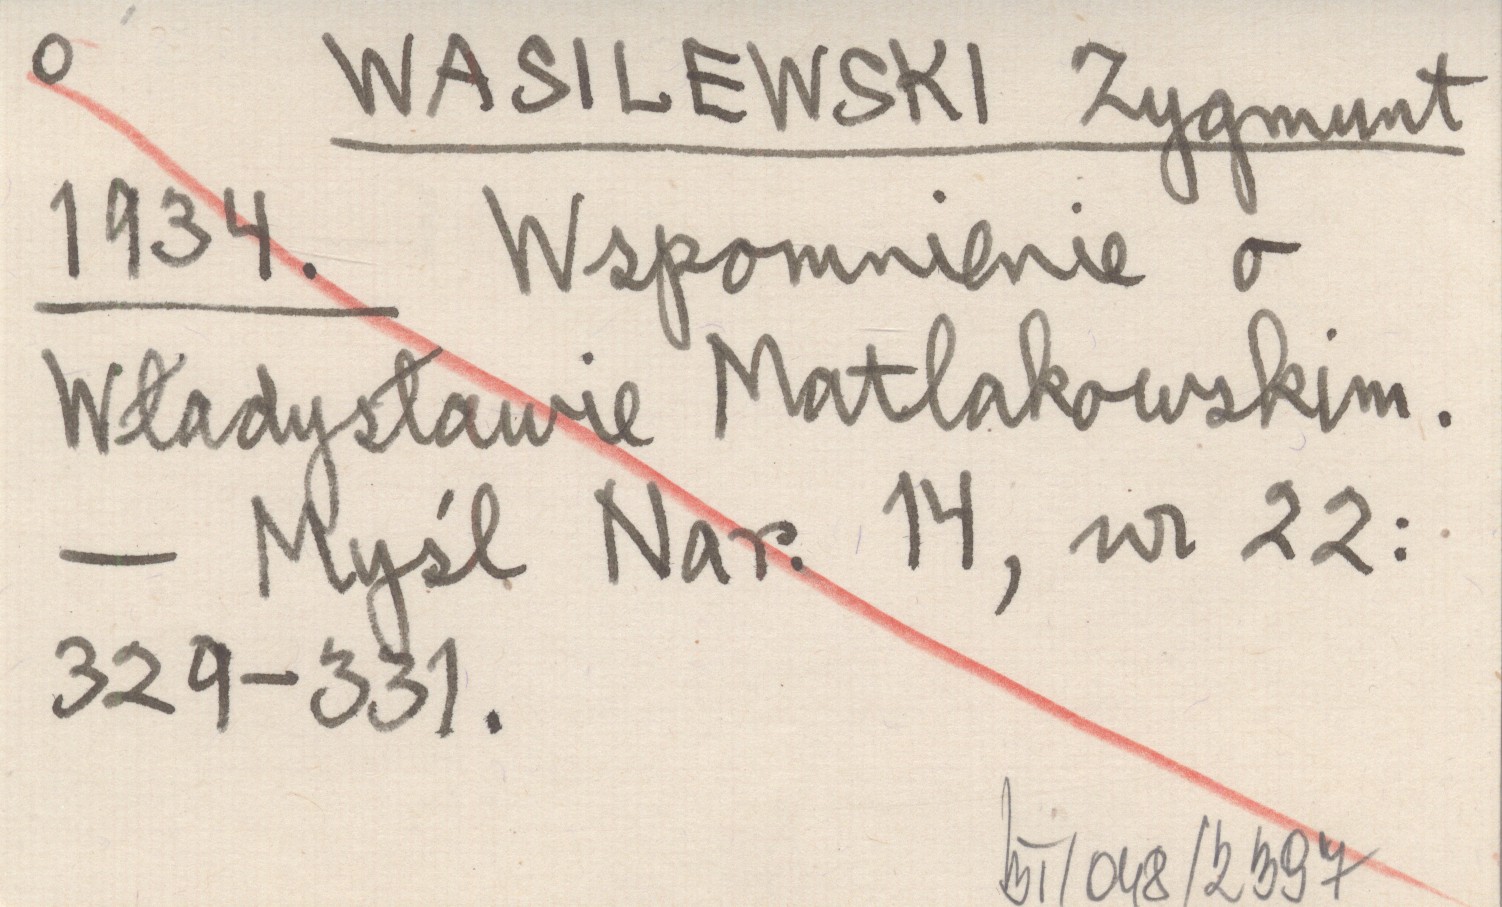 o WASILEWSKI Zygmunt
1934. Wspomnienie o
Władysławie Matlakowskim.
— Myśl Nar. 14, nr 22:
329-331.
/048/2397